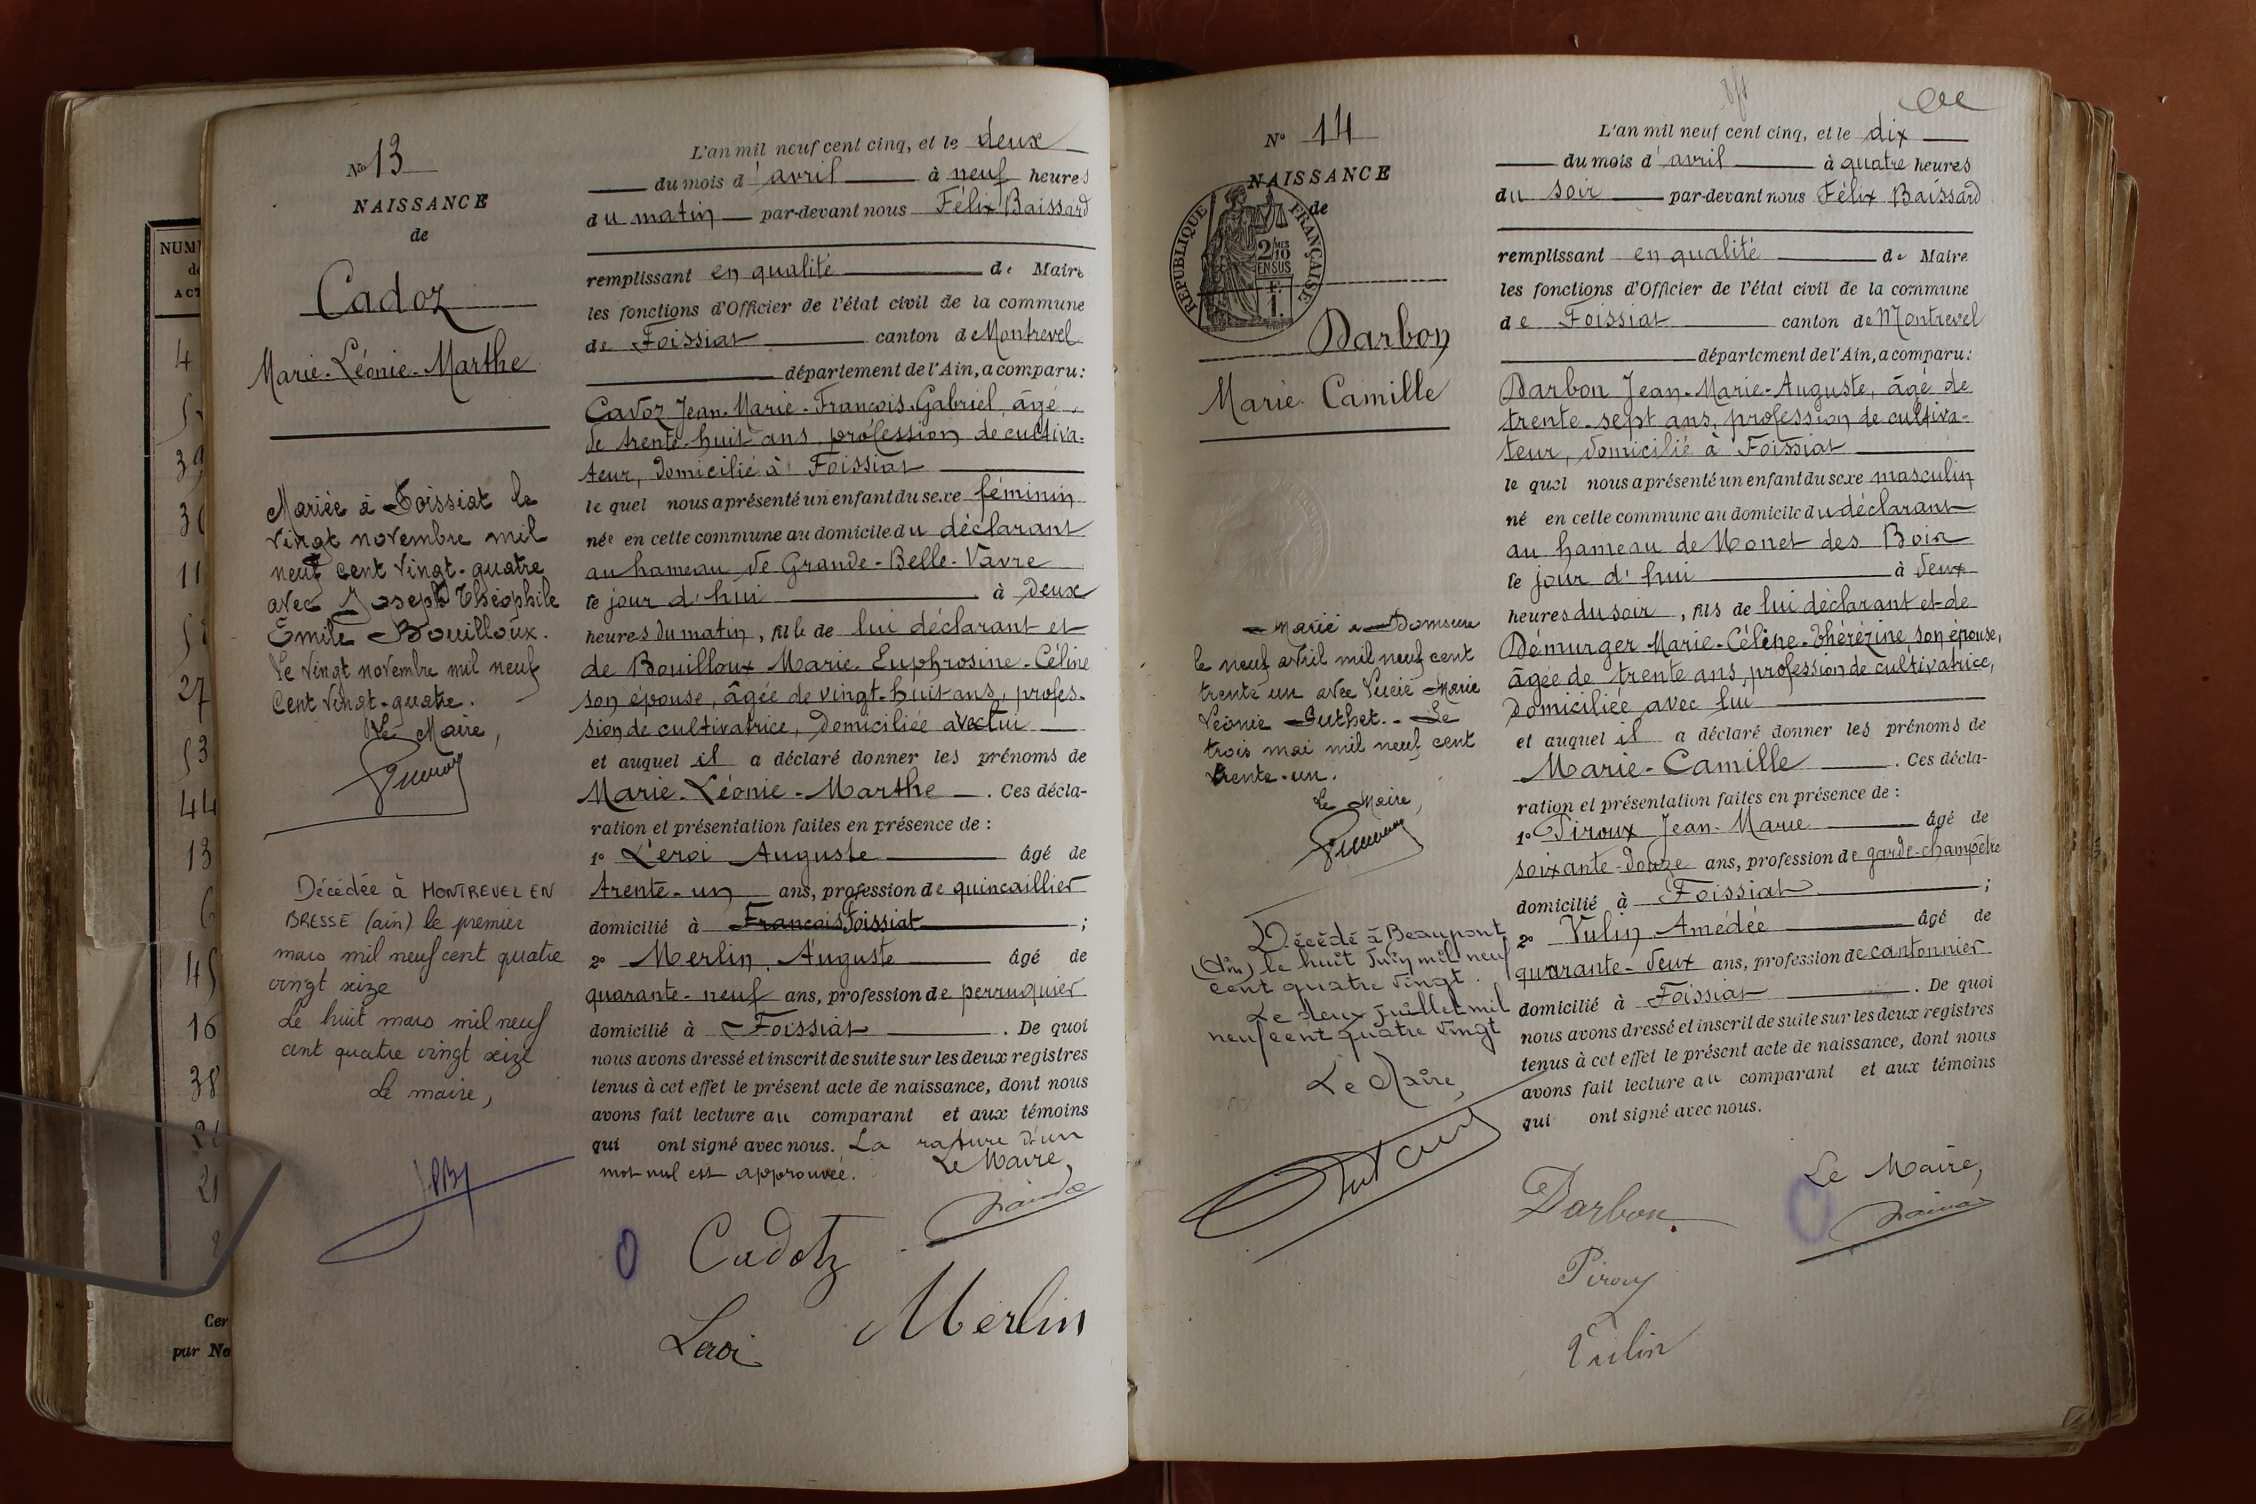 NUM
ACT
4
39
11
27
53
44
13
6
45
16
38
21
21
Cer
par No
No 13
NAISSANCE
de
Cadoz
Marie-Léonie-Marthe
Mariée à Foissiat le
vingt novembre mil
neuf cent vingt-quatre
avec Joseph Théophile
Emile Bouilloux.
Le vingt novembre mil neuf
cent vingt-quatre.
Le Maire,
Décédée à MONTREVEL EN
BRESSE (ain) le premier
mars mil neuf cent quatre
vingt seize
Le huit mars mil neuf
cent quatre vingt seize
Le maire,
L'an mil neuf cent cinq, et le deux
du mois d'avril à neuf heures
du matin par-devant nous Félix Baissard
remplissant en qualité de Maire
les fonctions d'Officier de l'état civil de la commune
de Foissiat canton de Montrevel
département de l'Ain, a comparu:
Cadoz Jean-Marie-François-Gabriel, âgé
de trente-huit ans, profession de cultiva-
teur, domicilié à Foissiat
le quel nous a présenté un enfant du sexe féminin
née en cette commune au domicile du déclarant
au hameau de Grande-Belle-Vavre
le jour d'hui à deux
heures du matin, fille de lui déclarant et
de Bouilloux Marie-Euphrosine-Céline
son épouse, âgée de vingt-huit ans, profes-
sion de cultivatrice, domiciliée avec lui
et auquel il a déclaré donner les prénoms de
Marie-Léonie-Marthe. Ces décla-
ration et présentation faites en présence de :
1° Leroi Auguste âgé de
trente-un ans, profession de quincaillier
domicilié à François Foissiat ;
2° Merlin Auguste âgé de
quarante-neuf ans, profession de perruquier
domicilié à Foissiat. De quoi
nous avons dressé et inscrit de suite sur les deux registres
tenus à cet effet le présent acte de naissance, dont nous
avons fait lecture au comparant et aux témoins
qui ont signé avec nous. La rature d'un
mot nul est approuvée. Le Maire,
Cadotz
Leroi Merlin
N° 14
NAISSANCE
de
RÉPUBLIQUE FRANÇAISE
2/10MES
EN SUS
1F.
Darbon
Marie-Camille
Marié à Domsure
le neuf avril mil neuf cent
trente un avec Lucie Marie
Léonie Guthet. - Le
trois mai mil neuf cent
trente-un.
Le Maire,
Décédé à Beaupont
(Ain) le huit juin mil neuf
cent quatre vingt.
Le deux juillet mil
neuf cent quatre vingt
Le Maire,
L'an mil neuf cent cinq, et le dix
du mois d'avril à quatre heures
du soir par-devant nous Félix Baissard
remplissant en qualité de Maire
les fonctions d'Officier de l'état civil de la commune
de Foissiat canton de Montrevel
département de l'Ain, a comparu:
Darbon Jean-Marie-Auguste, âgé de
trente-sept ans, profession de cultiva-
teur, domicilié à Foissiat
le quel nous a présenté un enfant du sexe masculin
né en cette commune au domicile du déclarant
au hameau de Monet des Bois
le jour d'hui à deux
heures du soir, fils de lui déclarant et de
Démurger Marie-Céline-Thérézine son épouse,
âgée de trente ans, profession de cultivatrice,
domiciliée avec lui
et auquel il a déclaré donner les prénoms de
Marie-Camille. Ces décla-
ration et présentation faites en présence de :
1° Piroux Jean-Marie âgé de
soixante-douze ans, profession de garde-champêtre
domicilié à Foissiat ;
2° Vulin Amédée âgé de
quarante-deux ans, profession de cantonnier
domicilié à Foissiat. De quoi
nous avons dressé et inscrit de suite sur les deux registres
tenus à cet effet le présent acte de naissance, dont nous
avons fait lecture au comparant et aux témoins
qui ont signé avec nous.
Le Maire,
Darbon
Piroux
Vulin